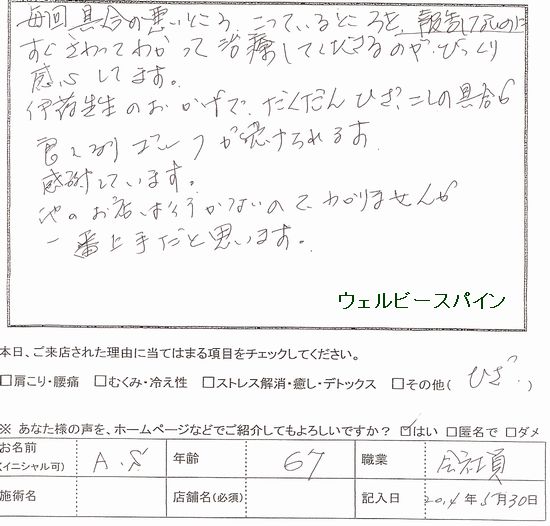 毎回具合の悪いところ、こっているところを、報告してないのに
すぐさわってわかって治療してくださるのが、びっくり
感心してます。
先生のおかげで、だんだんひざ、こしの具合も
良くなり ゴルフが続けられます
感謝しています。
他のお店は行かないのでわかりませんが
一番上手だと思います。
ウェルビースパイン
本日、ご来店された理由に当てはまる項目をチェックしてください。
□肩こり・腰痛 □むくみ・冷え性 □ストレス解消・癒し・デトックス □その他( ひざ )
※ あなた様の声を、ホームページなどでご紹介してもよろしいですか? ☑はい □匿名で □ダメ
お名前(イニシャル可) A.S 年齢 67 職業 会社員
施術名 店舗名(必須) 記入日 2014年5月30日